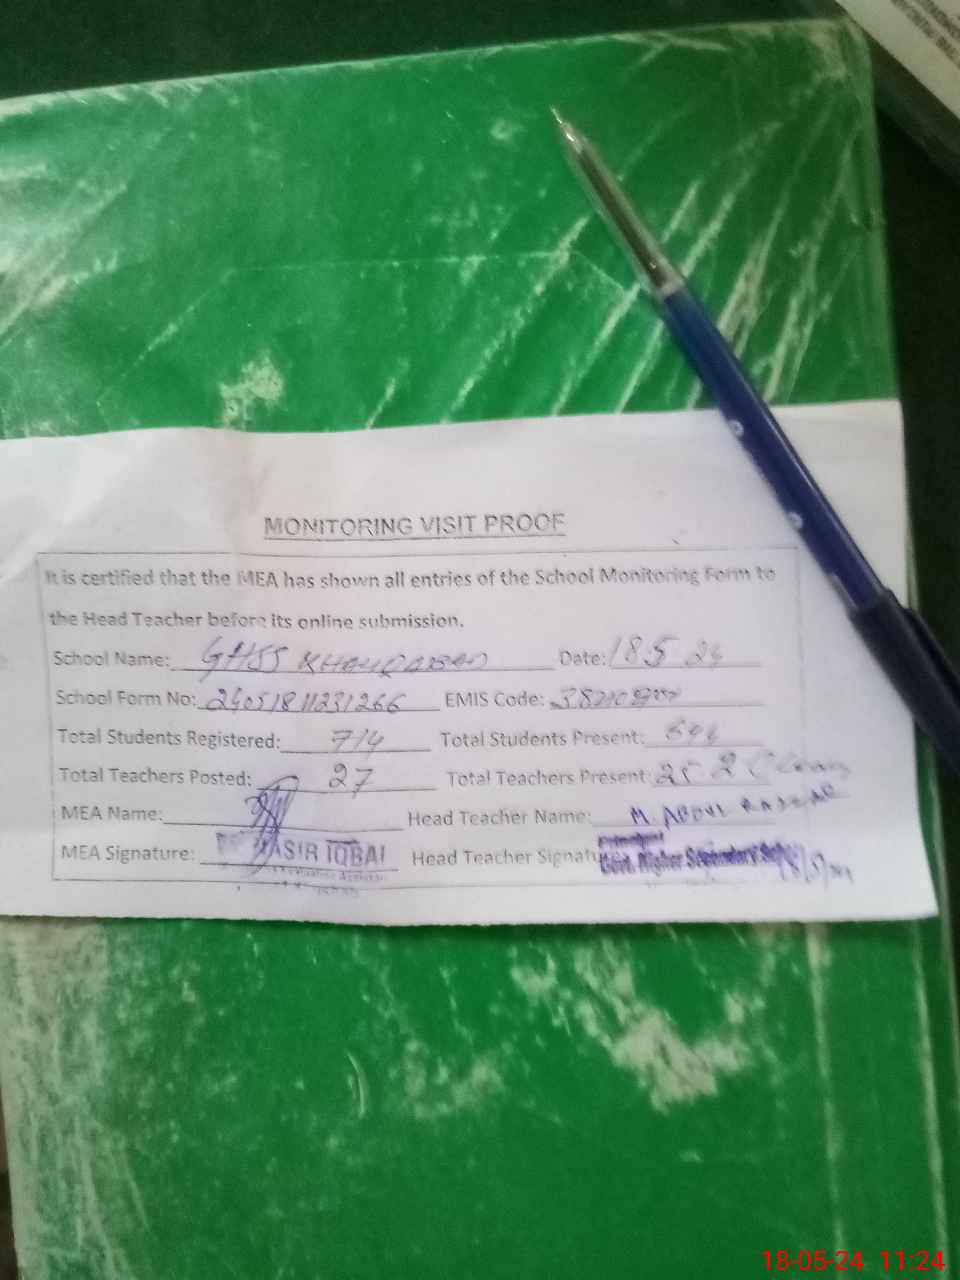 MONITORING VISIT PROOF
It is certified that the MEA has shown all entries of the School Monitoring Form to
the Head Teacher before its online submission.
School Name: GHSS Date: 18 5 24
School Form No: 24051811231266 EMIS Code:
Total Students Registered: 714 Total Students Present:
Total Teachers Posted: 27 Total Teachers Present: 25
MEA Name: Head Teacher Name: M. ABDUL
MEA Signature: IQBAL Head Teacher Signatu
Principal
Govt. Higher Secondary
18-05-24 11:24